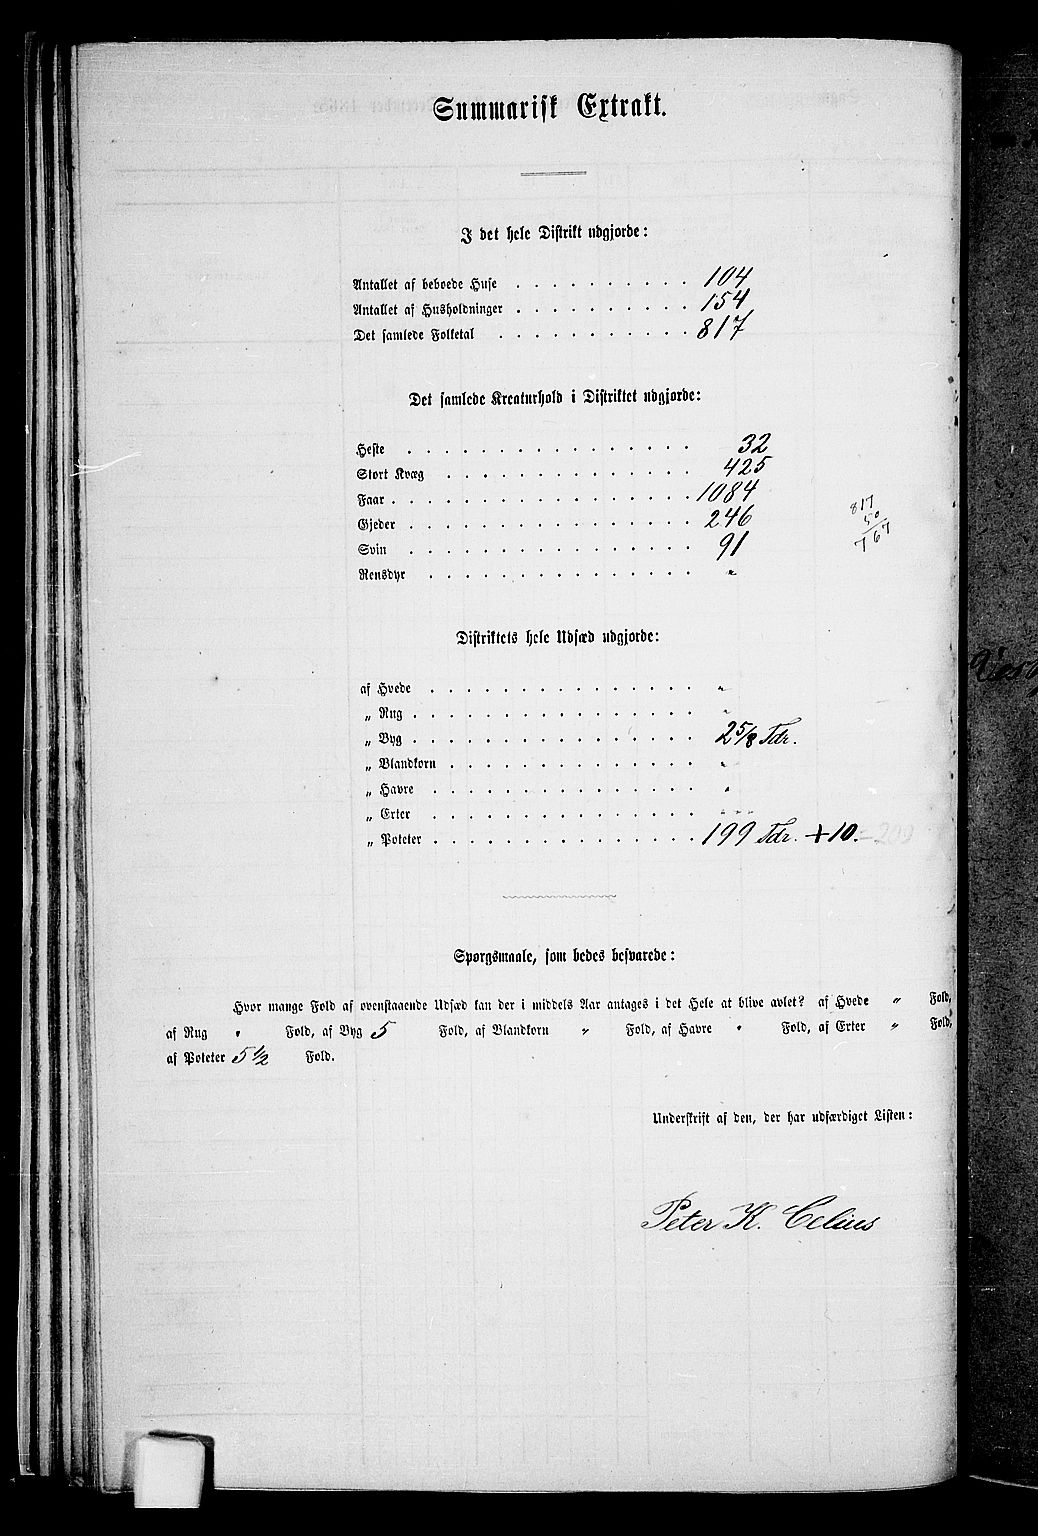 Summarisk Extrakt.
I det hele Distrikt udgjorde:
Antallet af beboede Huse . . . . . . . . . . 104
Antallet af Husholdninger . . . . . . . . . . 154
Det samlede Folketal . . . . . . . . . . 817
Det samlede Kreaturhold i Distriktet udgjorde:
Heste . . . . . . . . . . . . . . . 32
Stort Kvæg . . . . . . . . . . . . . 425
Faar . . . . . . . . . . . . . . . 1084
Gjeder . . . . . . . . . . . . . . 246
Svin . . . . . . . . . . . . . . . 91
Rensdyr . . . . . . . . . . . . . . "
817
50
767
Distriktets hele Udsæd udgjorde:
af Hvede . . . . . . . . . . . . . . "
„ Rug . . . . . . . . . . . . . . . "
„ Byg . . . . . . . . . . . . . . . 2 5/8 Tdr.
„ Blandkorn . . . . . . . . . . . . . "
„ Havre . . . . . . . . . . . . . . "
„ Erter . . . . . . . . . . . . . . "
„ Poteter . . . . . . . . . . . . . . 199 Tdr. + 10. = 209
Spørgsmaale, som bedes besvarede:
Hvor mange Fold af ovenstaaende Udsæd kan der i middels Aar antages i det Hele at blive avlet? af Hvede " Fold,
af Rug " Fold, af Byg 5 Fold, af Blandkorn " Fold, af Havre " Fold, af Erter " Fold,
af Poteter 5 1/2 Fold.
Underskrift af den, der har udfærdiget Listen:
Peter K. Celius